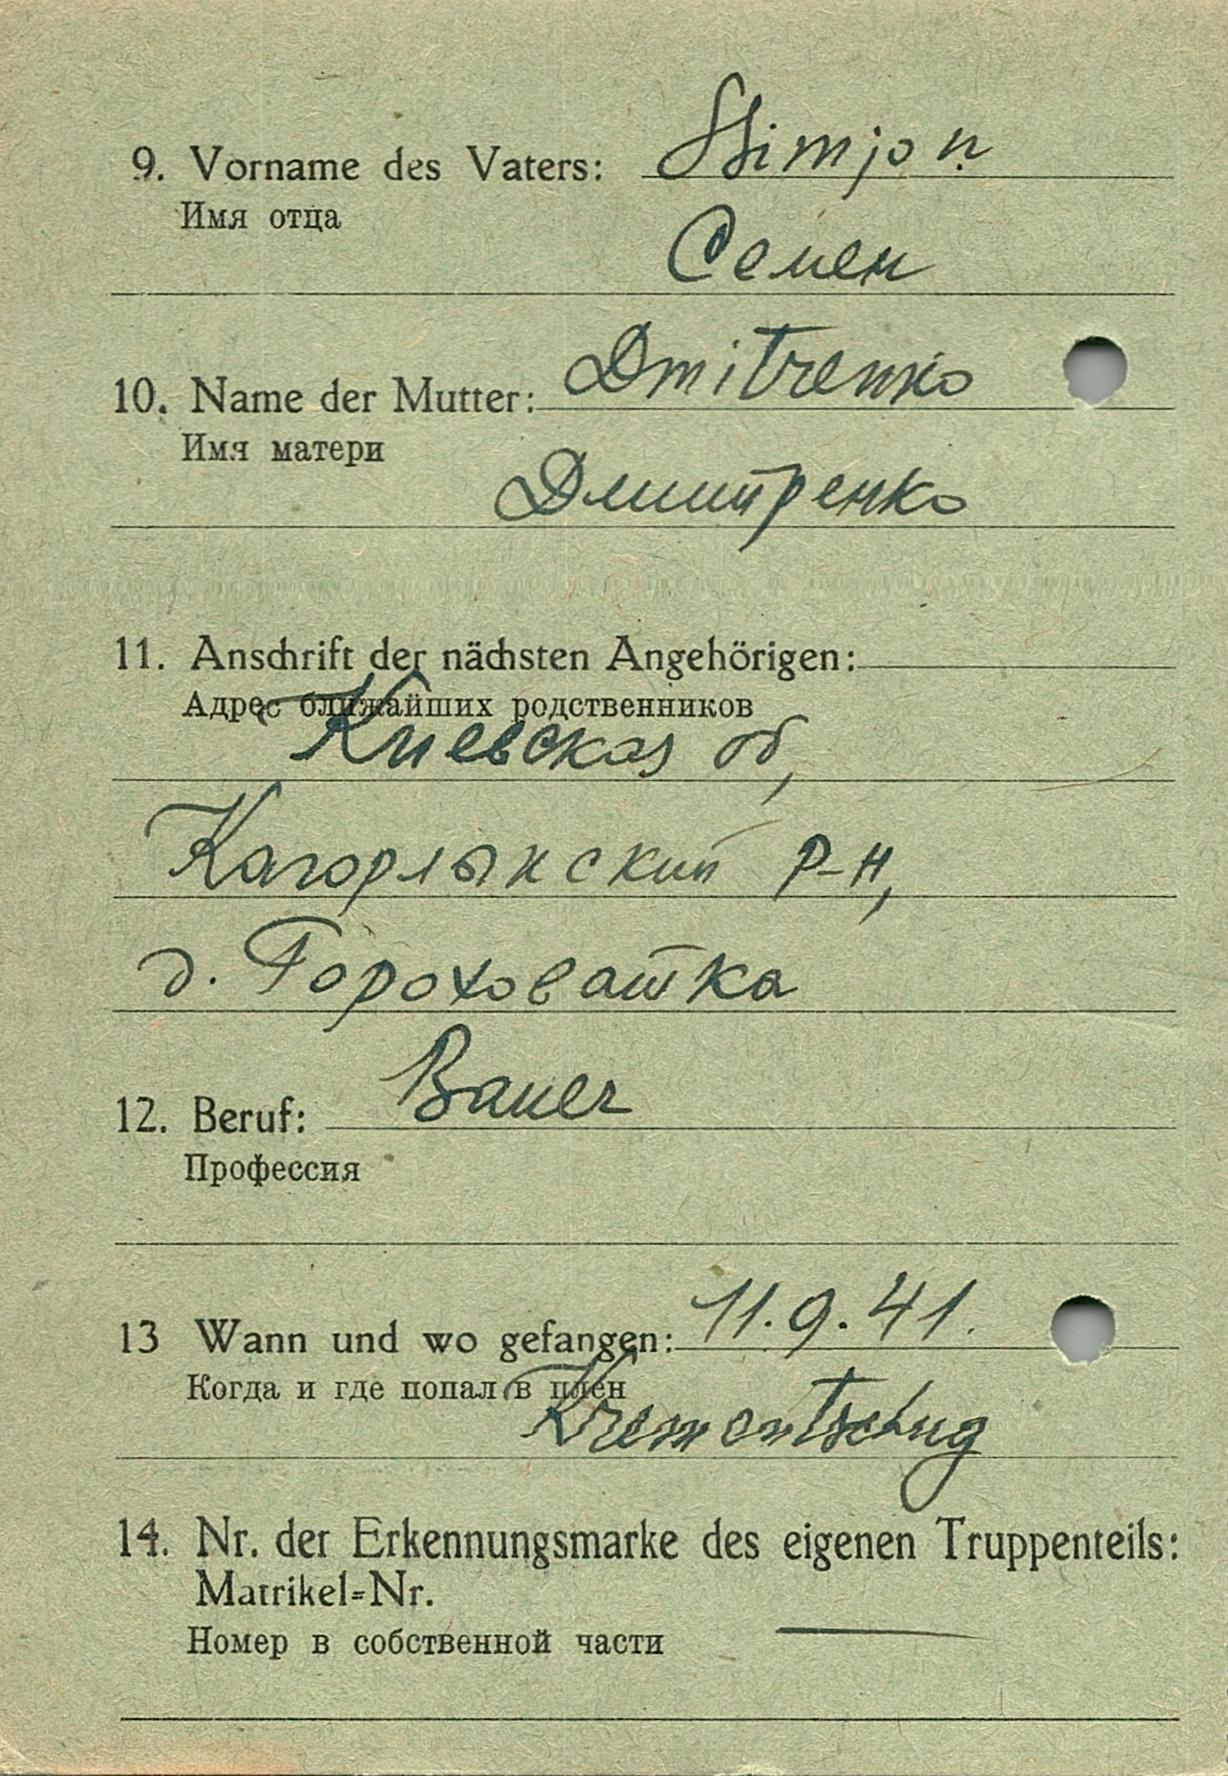 9. Vorname des Vaters: Simjon
Имя отца
Семен
10. Name der Mutter: Dmitrenko
Имя матери
Дмитренко
11. Anschrift der nächsten Angehörigen:
Адрес ближайших родственников
Киевская об,
Кагорлыкский р-н,
д. Гороховатка
12. Beruf: Bauer
Профессия
13 Wann und wo gefangen: 11.9.41.
Когда и где попал в плен
Krementschug
14. Nr. der Erkennungsmarke des eigenen Truppenteils:
Matrikel-Nr.
Номер в собственной части